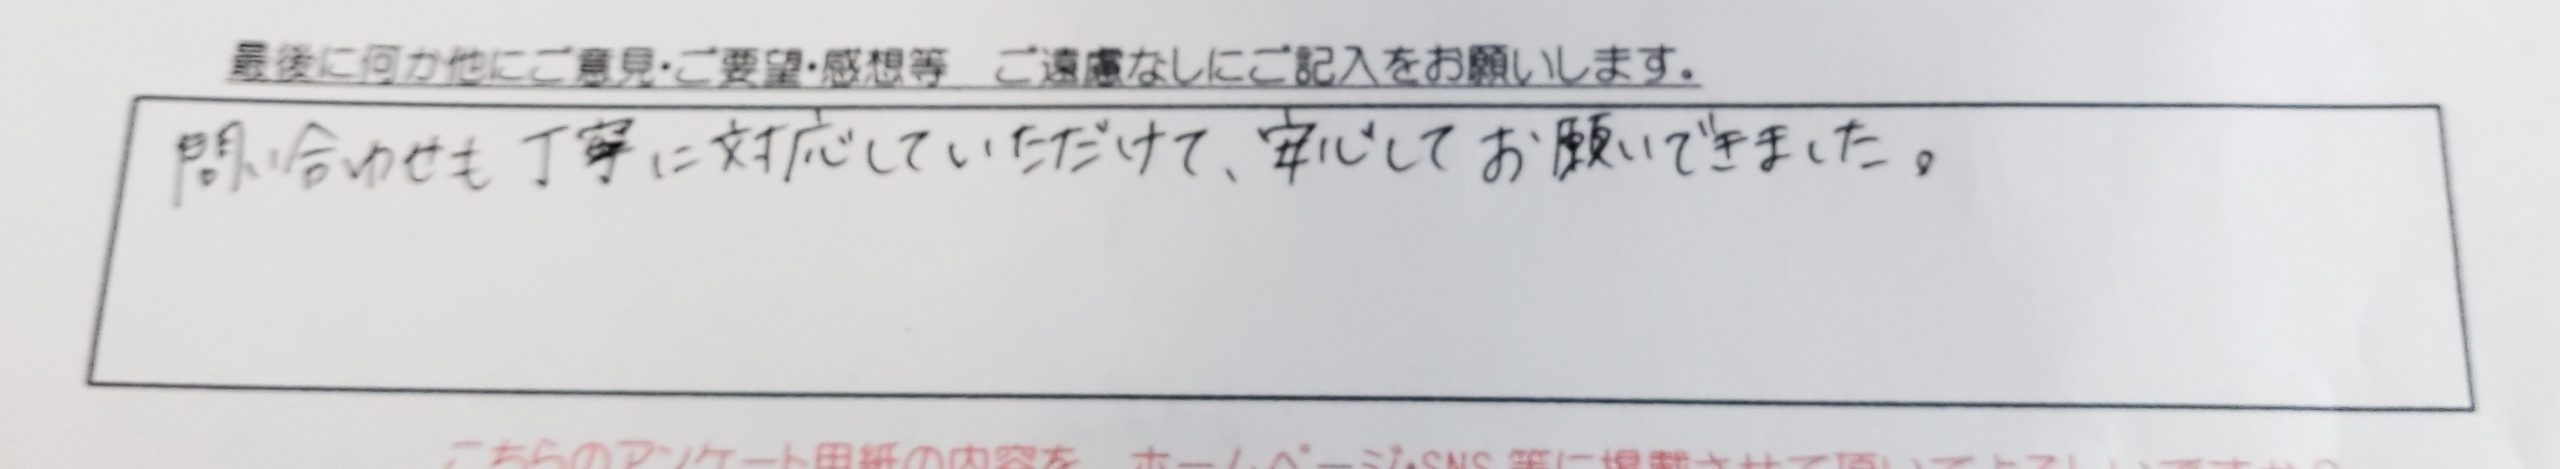 最後に何か他にご意見・ご要望・感想等　ご遠慮なしにご記入をお願いします。
問い合わせも丁寧に対応していただけて、安心してお願いできました。
こちらのアンケート用紙の内容を、ホームページ・SNS 等に掲載させて頂いてよろしいですか？